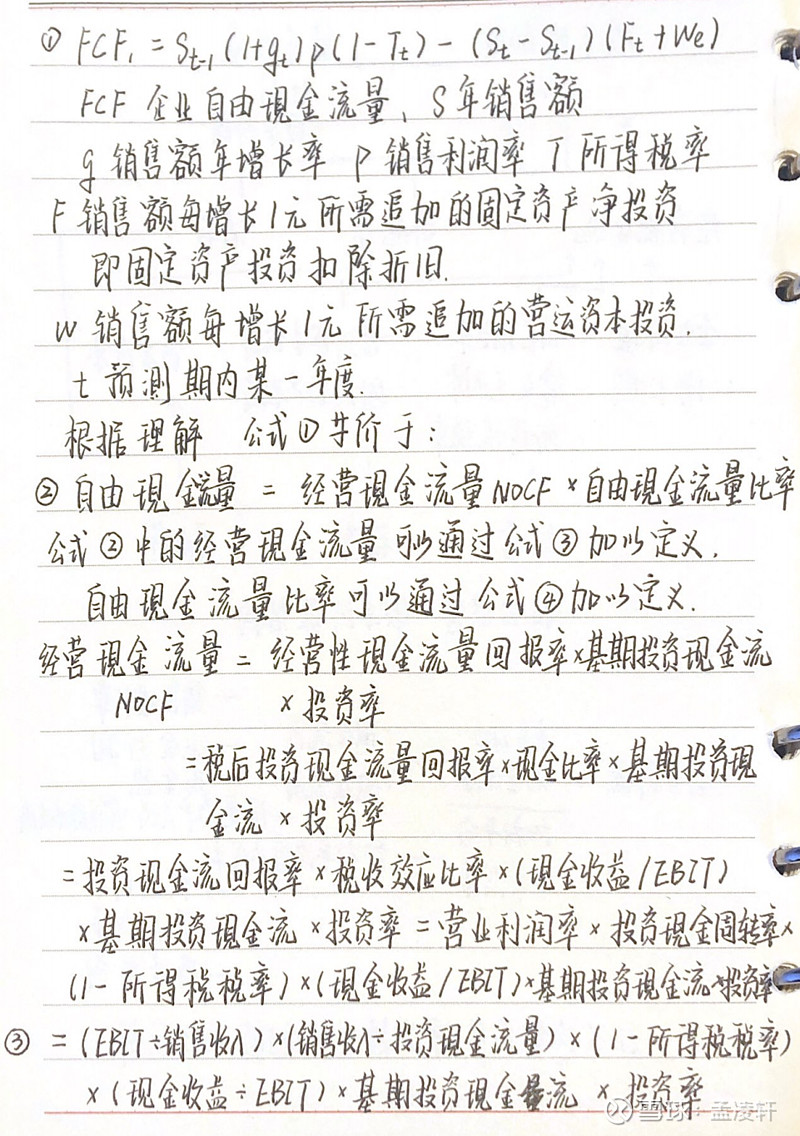 ① FCF₁ = St-1 (1+gt) p (1-Tt) - (St - St-1) (Ft + We)
FCF 企业自由现金流量、S年销售额
g 销售额年增长率 p 销售利润率 T 所得税率
F 销售额每增长1元所需追加的固定资产净投资
即固定资产投资扣除折旧.
W 销售额每增长1元所需追加的营运资本投资.
t 预测期内某一年度.
根据理解 公式①等价于:
② 自由现金流量 = 经营现金流量NOCF × 自由现金流量比率
公式②中的经营现金流量可以通过公式③加以定义.
自由现金流量比率可以通过公式④加以定义.
经营现金流量 = 经营性现金流量回报率×基期投资现金流
NOCF × 投资率
=税后投资现金流量回报率×现金比率×基期投资现
金流 × 投资率
=投资现金流回报率×税收效应比率×(现金收益/EBIT)
×基期投资现金流×投资率=营业利润率×投资现金周转率×
(1-所得税税率)×(现金收益/EBIT)×基期投资现金流×投资率
③ =(EBIT÷销售收入)×(销售收入÷投资现金流量)×(1-所得税税率)
×(现金收益÷EBIT)×基期投资现金流 × 投资率
雪球:孟凌轩